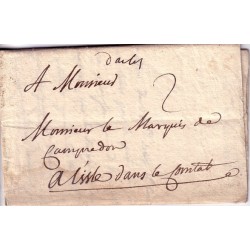 darles
A Monsieur
2
Monsieur le Marquis de
Campredon
a lisle dans le Comtat